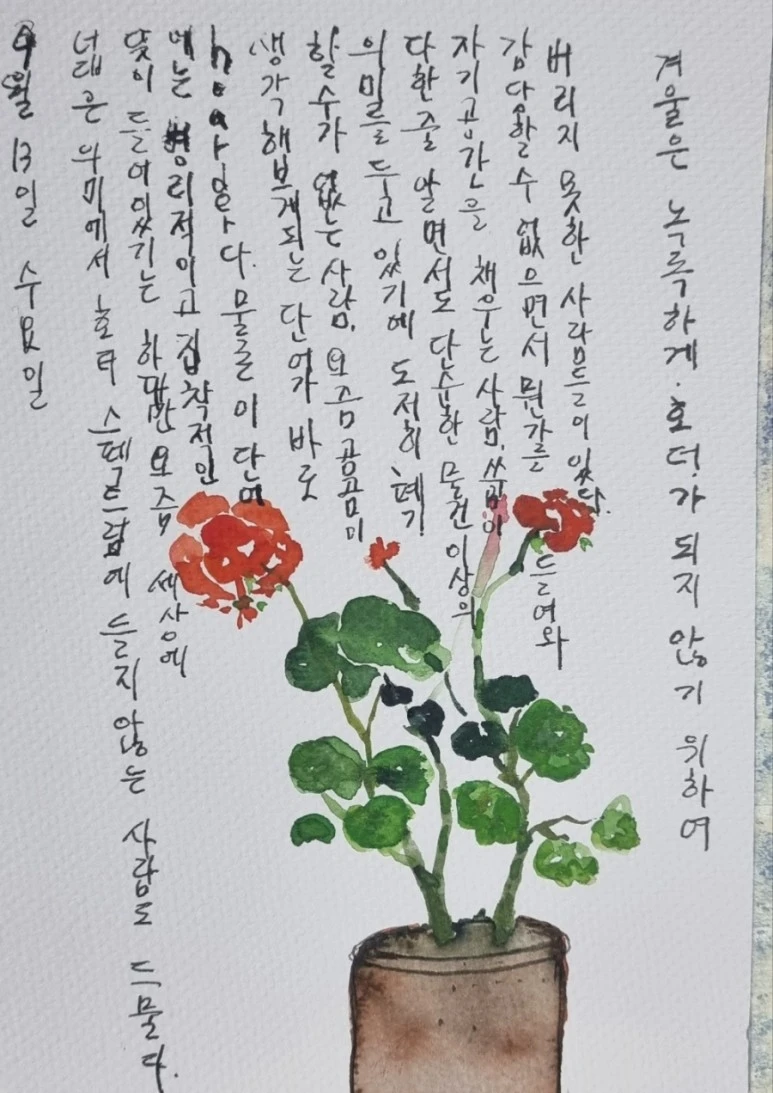 겨울은 녹록하게. 호더가 되지 않기 위하여
버리지 못한 사람들이 있다.
감당할 수 없으면서 뭔가를 들여와
자기공간을 채우는 사람, 쓰임이
다한 줄 알면서도 단순한 물건 이상의
의미를 두고 있기에 도저히 폐기
할 수가 없는 사람, 요즘 곰곰이
생각해보게되는 단어가 바로
다. 물론 이 단어
에는 병리적이고 집착적인
들어있기는 하지만 요즘 세상에
넓은 의미에서 호더 스펙트럼에 들지 않는 사람도 드물다.
4월 13일 수요일